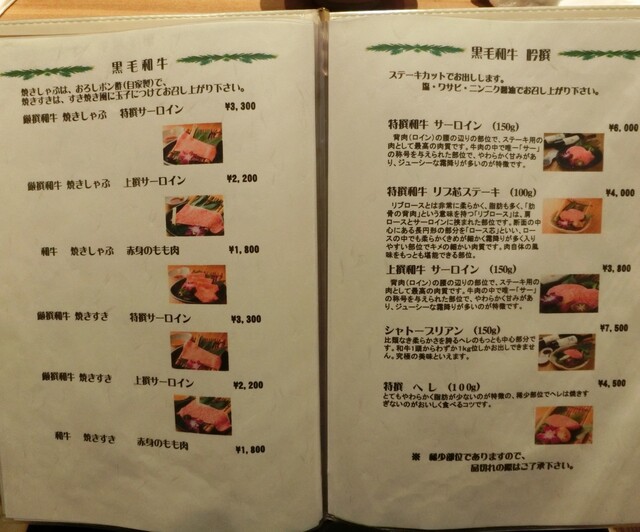 黒毛和牛
焼きしゃぶは、おろしポン酢(自家製)で、
焼きすきは、すき焼き風に玉子につけてお召し上がり下さい。
厳撰和牛 焼きしゃぶ 特撰サーロイン ¥3,300
厳撰和牛 焼きしゃぶ 上撰サーロイン ¥2,200
和牛 焼きしゃぶ 赤身のもも肉 ¥1,800
厳撰和牛 焼きすき 特撰サーロイン ¥3,300
厳撰和牛 焼きすき 上撰サーロイン ¥2,200
和牛 焼きすき 赤身のもも肉 ¥1,800
黒毛和牛 吟撰
ステーキカットでお出しします。
塩・ワサビ・ニンニク醤油でお召し上がり下さい。
特撰和牛 サーロイン (150g) ¥6,000
背肉(ロイン)の腰の辺りの部位で、ステーキ用の
肉として最高の肉質です。牛肉の中で唯一「サー」
の称号を与えられた部位で、やわらかく甘みがあ
り、ジューシーな霜降りが多いのが特徴です。
特撰和牛 リブ芯ステーキ (100g) ¥4,000
リブロースとは非常に柔らかく、脂肪も多く、「肋
骨の背肉」という意味を持つ「リブロース」は、肩
ロースとサーロインに挟まれた部位です。断面の中
心にある長円形の部分を「ロース芯」といい、ロー
スの中でも柔らかくきめが細かく霜降りが多く入り
やすい部位でキメの細かい肉質です。肉自体の風
味をもっとも堪能できる部位。
上撰和牛 サーロイン (150g) ¥3,800
背肉(ロイン)の腰の辺りの部位で、ステーキ用の
肉として最高の肉質です。牛肉の中で唯一「サー」
の称号を与えられた部位で、やわらかく甘みがあ
り、ジューシーな霜降りが多いのが特徴です。
シャトーブリアン (150g) ¥7,500
比類なき柔らかさを誇るヘレのもっとも中心部分で
す。和牛1頭からわずか1kg位しかお出しできませ
ん。究極の美味といえます。
特撰 ヘレ (100g) ¥4,500
とてもやわらかく脂肪が少ないのが特徴の、稀少部位でヘレは焼きす
ぎないのがおいしく食べるコツです。
※ 稀少部位でありますので、
品切れの際はご了承下さい。